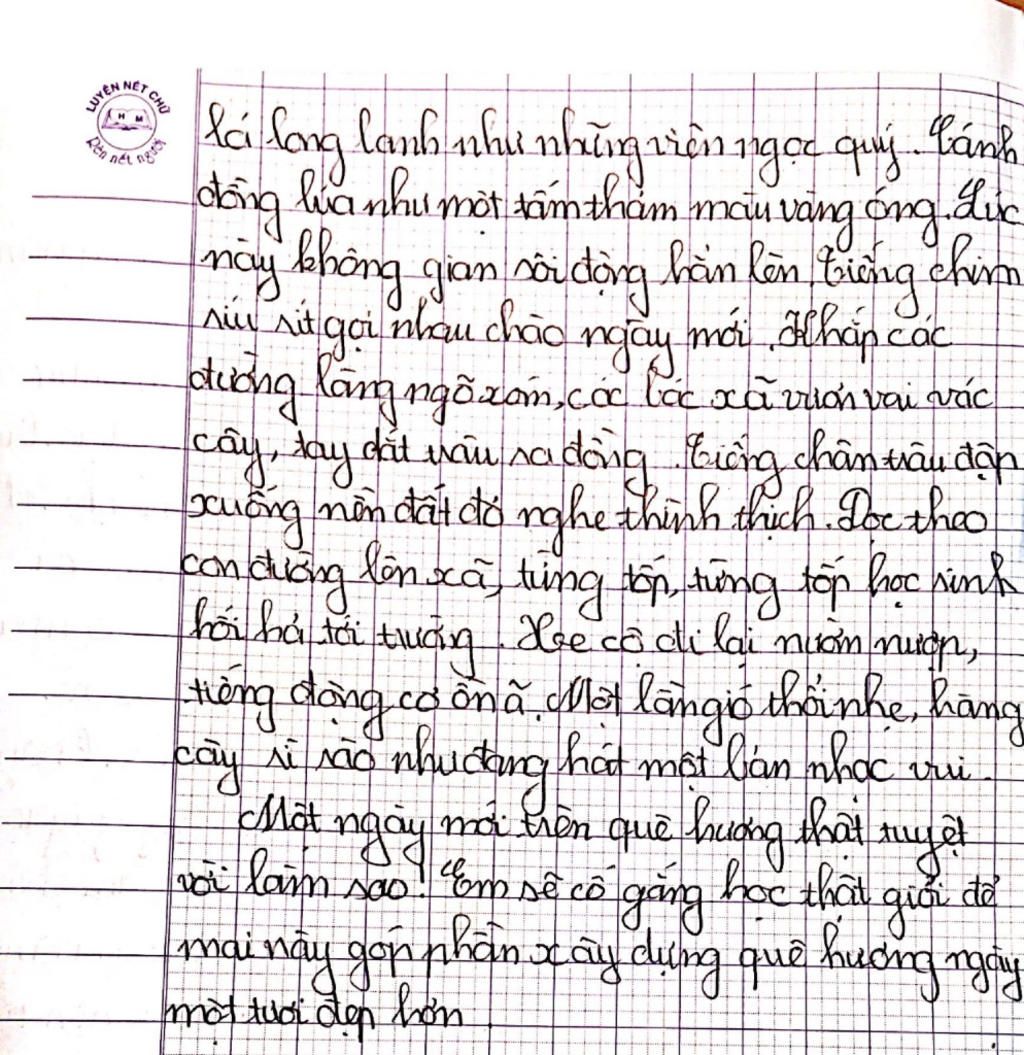 LUYỆN NÉT CHỮ
HM
Rèn nết người
lá long lanh như những viên ngọc quý. Cánh
đồng lúa như một tấm thảm màu vàng óng. Lúc
này không gian sôi động hẳn lên. Tiếng chim
ríu rít gọi nhau chào ngày mới. Khắp các
đường làng ngõ xóm, các bác xã vươn vai vác
cày, tay dắt trâu ra đồng. Tiếng chân trâu đập
xuống nền đất đỏ nghe thình thịch. Dọc theo
con đường lên xã, từng tốp, từng tốp học sinh
hối hả tới trường. Xe cộ đi lại nườm nượp,
tiếng động cơ ồn ã. Một làn gió thổi nhẹ, hàng
cây rì rào như đang hát một bản nhạc vui.
Một ngày mới trên quê hương thật tuyệt
vời làm sao! Em sẽ cố gắng học thật giỏi để
mai này góp phần xây dựng quê hương ngày
một tươi đẹp hơn.